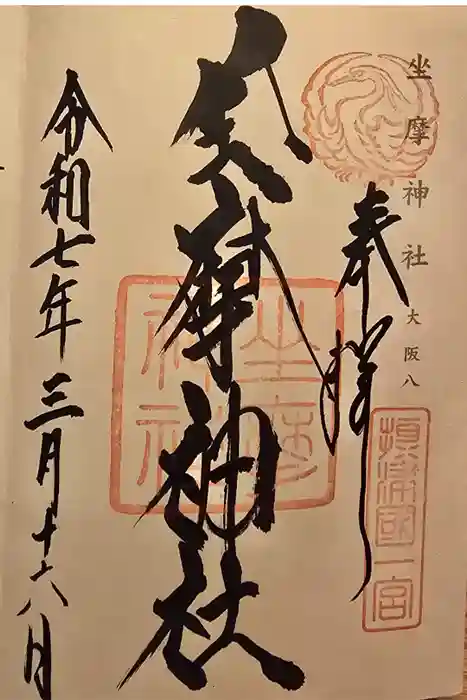 坐摩神社 大阪八
奉拝
攝津國一宮
坐摩神社
坐摩神社
令和七年三月十六日